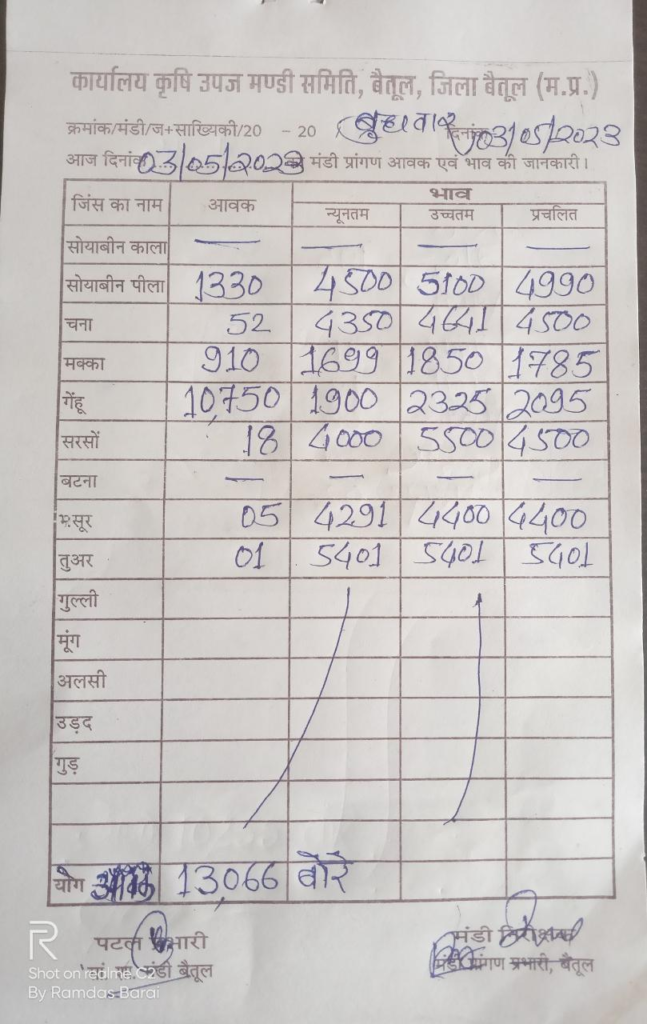 कार्यालय कृषि उपज मण्डी समिति, बैतूल, जिला बैतूल (म.प्र.)
क्रमांक/मंडी/ज+सांख्यिकी/20 - 20 बुधवार दिनांक 03/05/2023
आज दिनांक 03/05/2023 को मंडी प्रांगण आवक एवं भाव की जानकारी।
जिंस का नाम आवक भाव
न्यूनतम उच्चतम प्रचलित
सोयाबीन काला — — — —
सोयाबीन पीला 1330 4500 5100 4990
चना 52 4350 4641 4500
मक्का 910 1699 1850 1785
गेंहू 10,750 1900 2325 2095
सरसों 18 4000 5500 4500
बटना — — — —
मसूर 05 4291 4400 4400
तुअर 01 5401 5401 5401
गुल्ली
मूंग
अलसी
उड़द
गुड़
योग 13,066 बोरे
पटल प्रभारी
मंडी बैतूल
मंडी निरीक्षक
मंडी प्रांगण प्रभारी, बैतूल
R
Shot on realme C2
By Ramdas Barai